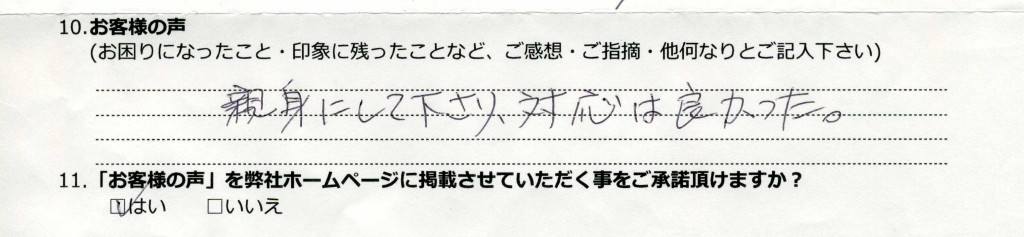 10.お客様の声
(お困りになったこと・印象に残ったことなど、ご感想・ご指摘・他何なりとご記入下さい)
親身にして下さり、対応は良かった。
11.「お客様の声」を弊社ホームページに掲載させていただく事をご承諾頂けますか？
☑はい　□いいえ